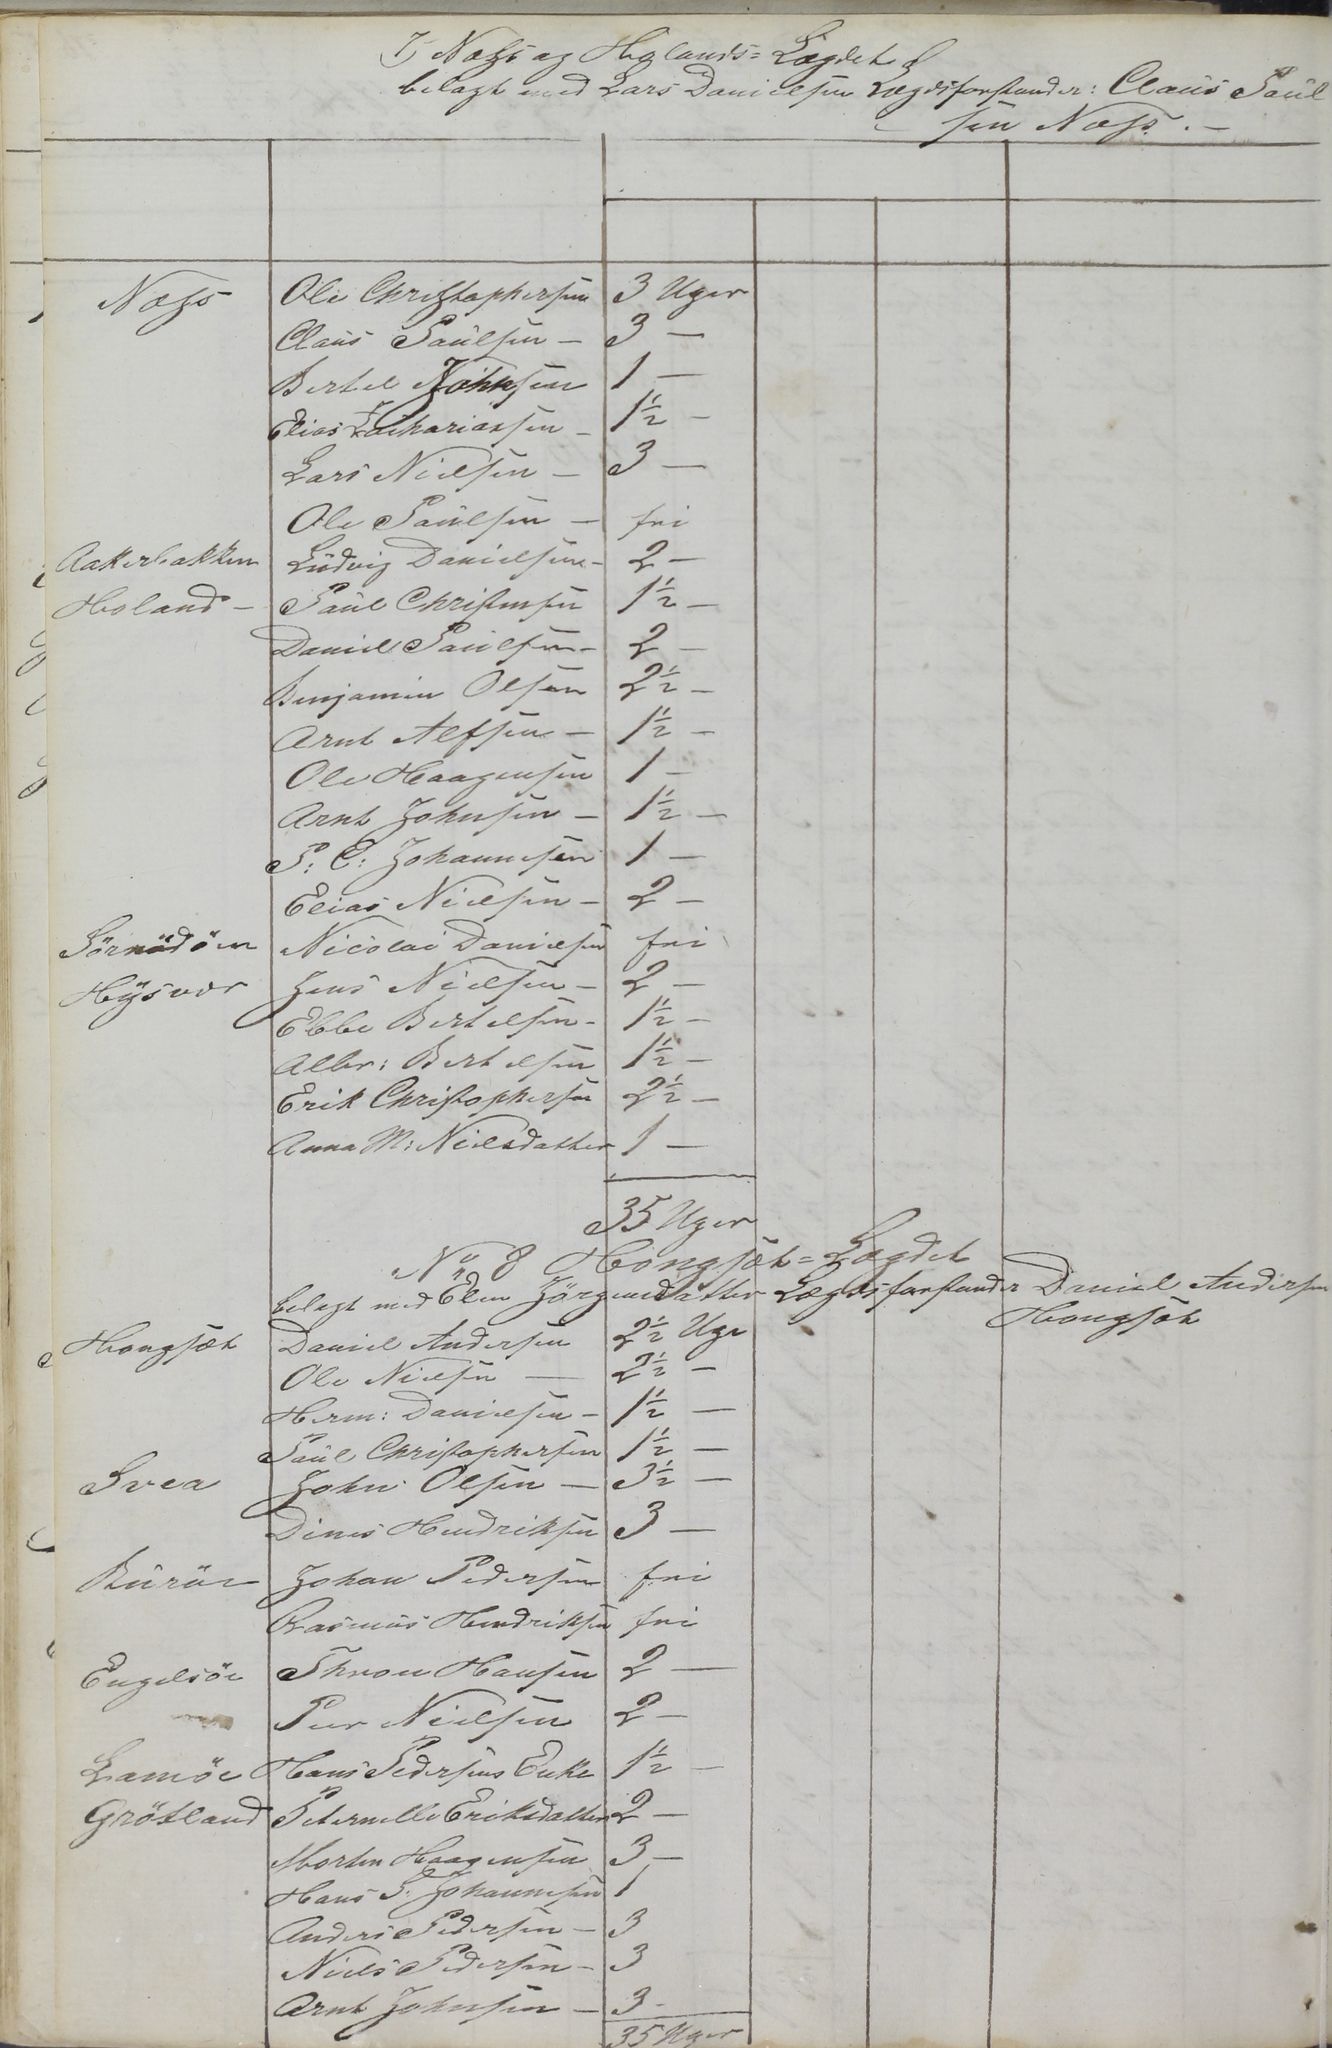 7, Næss og Holands=Lægdet
belagt med Lars Danielsen Lægdsforstander: Claus Paul
sen Næss. –
Næss Ole Christophersen 3 Uger
Claus Paulsen – 3 –
Bertel Johnsen 1 –
Elias Zachariassen – 1½ –
Lars Nielsen – 3 –
Ole Paulsen – fri
Aakerbakken Ludvig Danielsen – 2 –
Holand – Paul Christensen 1½ –
Daniel Paulsen – 2 –
Benjamin Olsen 2½ –
Arnt Alfsen – 1½ –
Ole Haagensen 1 –
Arnt Johnsen – 1½ –
P: C: Johannesen 1 –
Elias Nielsen – 2 –
Sörnödöen Nicolai Danielsen fri
Hysvær Jens Nielsen – 2 –
Ebbe Bertelsen – 1½ –
Albr: Bertelsen 1½ –
Erik Christophersen 2½ –
Anna M: Nielsdatter 1 –
35 Uger
No 8 Hongsæt=Lægdet
belagt med Elen Jörgensdatter Lægdsforstander Daniel Andersen
Hongsæt
Hongsæt Daniel Andersen 2½ Uge
Ole Nielsen — 2½ –
Herm: Danielsen – 1½ –
Paul Christophersen 1½ –
Svea John Olsen – 3½ –
Dines Hendriksen 3 –
Buröe Johan Pedersen fri
Rasmus Hendriksen fri
Engelsöe Thron Hansen 2 –
Peer Nielsen 2 –
Lamöe Hans Pedersens Enke 1½ –
Grötland Peternelle Eriksdatter 2 –
Morten Haagensen 3 –
Hans P. Johannesen 1
Anders Pedersen – 3
Niels Pedersen – 3
Arnt Johnsen – 3 –
35 Uger